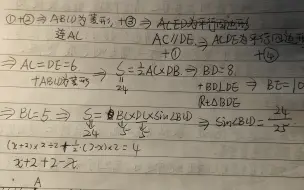 ①+②⇒ABCD为菱形, +③⇒ACED为平行四边形
连AC AC∥DE, ⇒ACDE为平行四边形
+① +④
⇒AC=DE=6 ⇒S=½AC×DB ⇒BD=8
+ABCD为菱形 24 +BD⊥DE ⇒BE=10
RtΔBDE
⇒BC=5 ⇒S=BC×DC×sin∠BCD ⇒sin∠BCD=24/25
24 5 5
(x+2)×2÷2+½·(2-x)×2=4
x+2+2-x
A